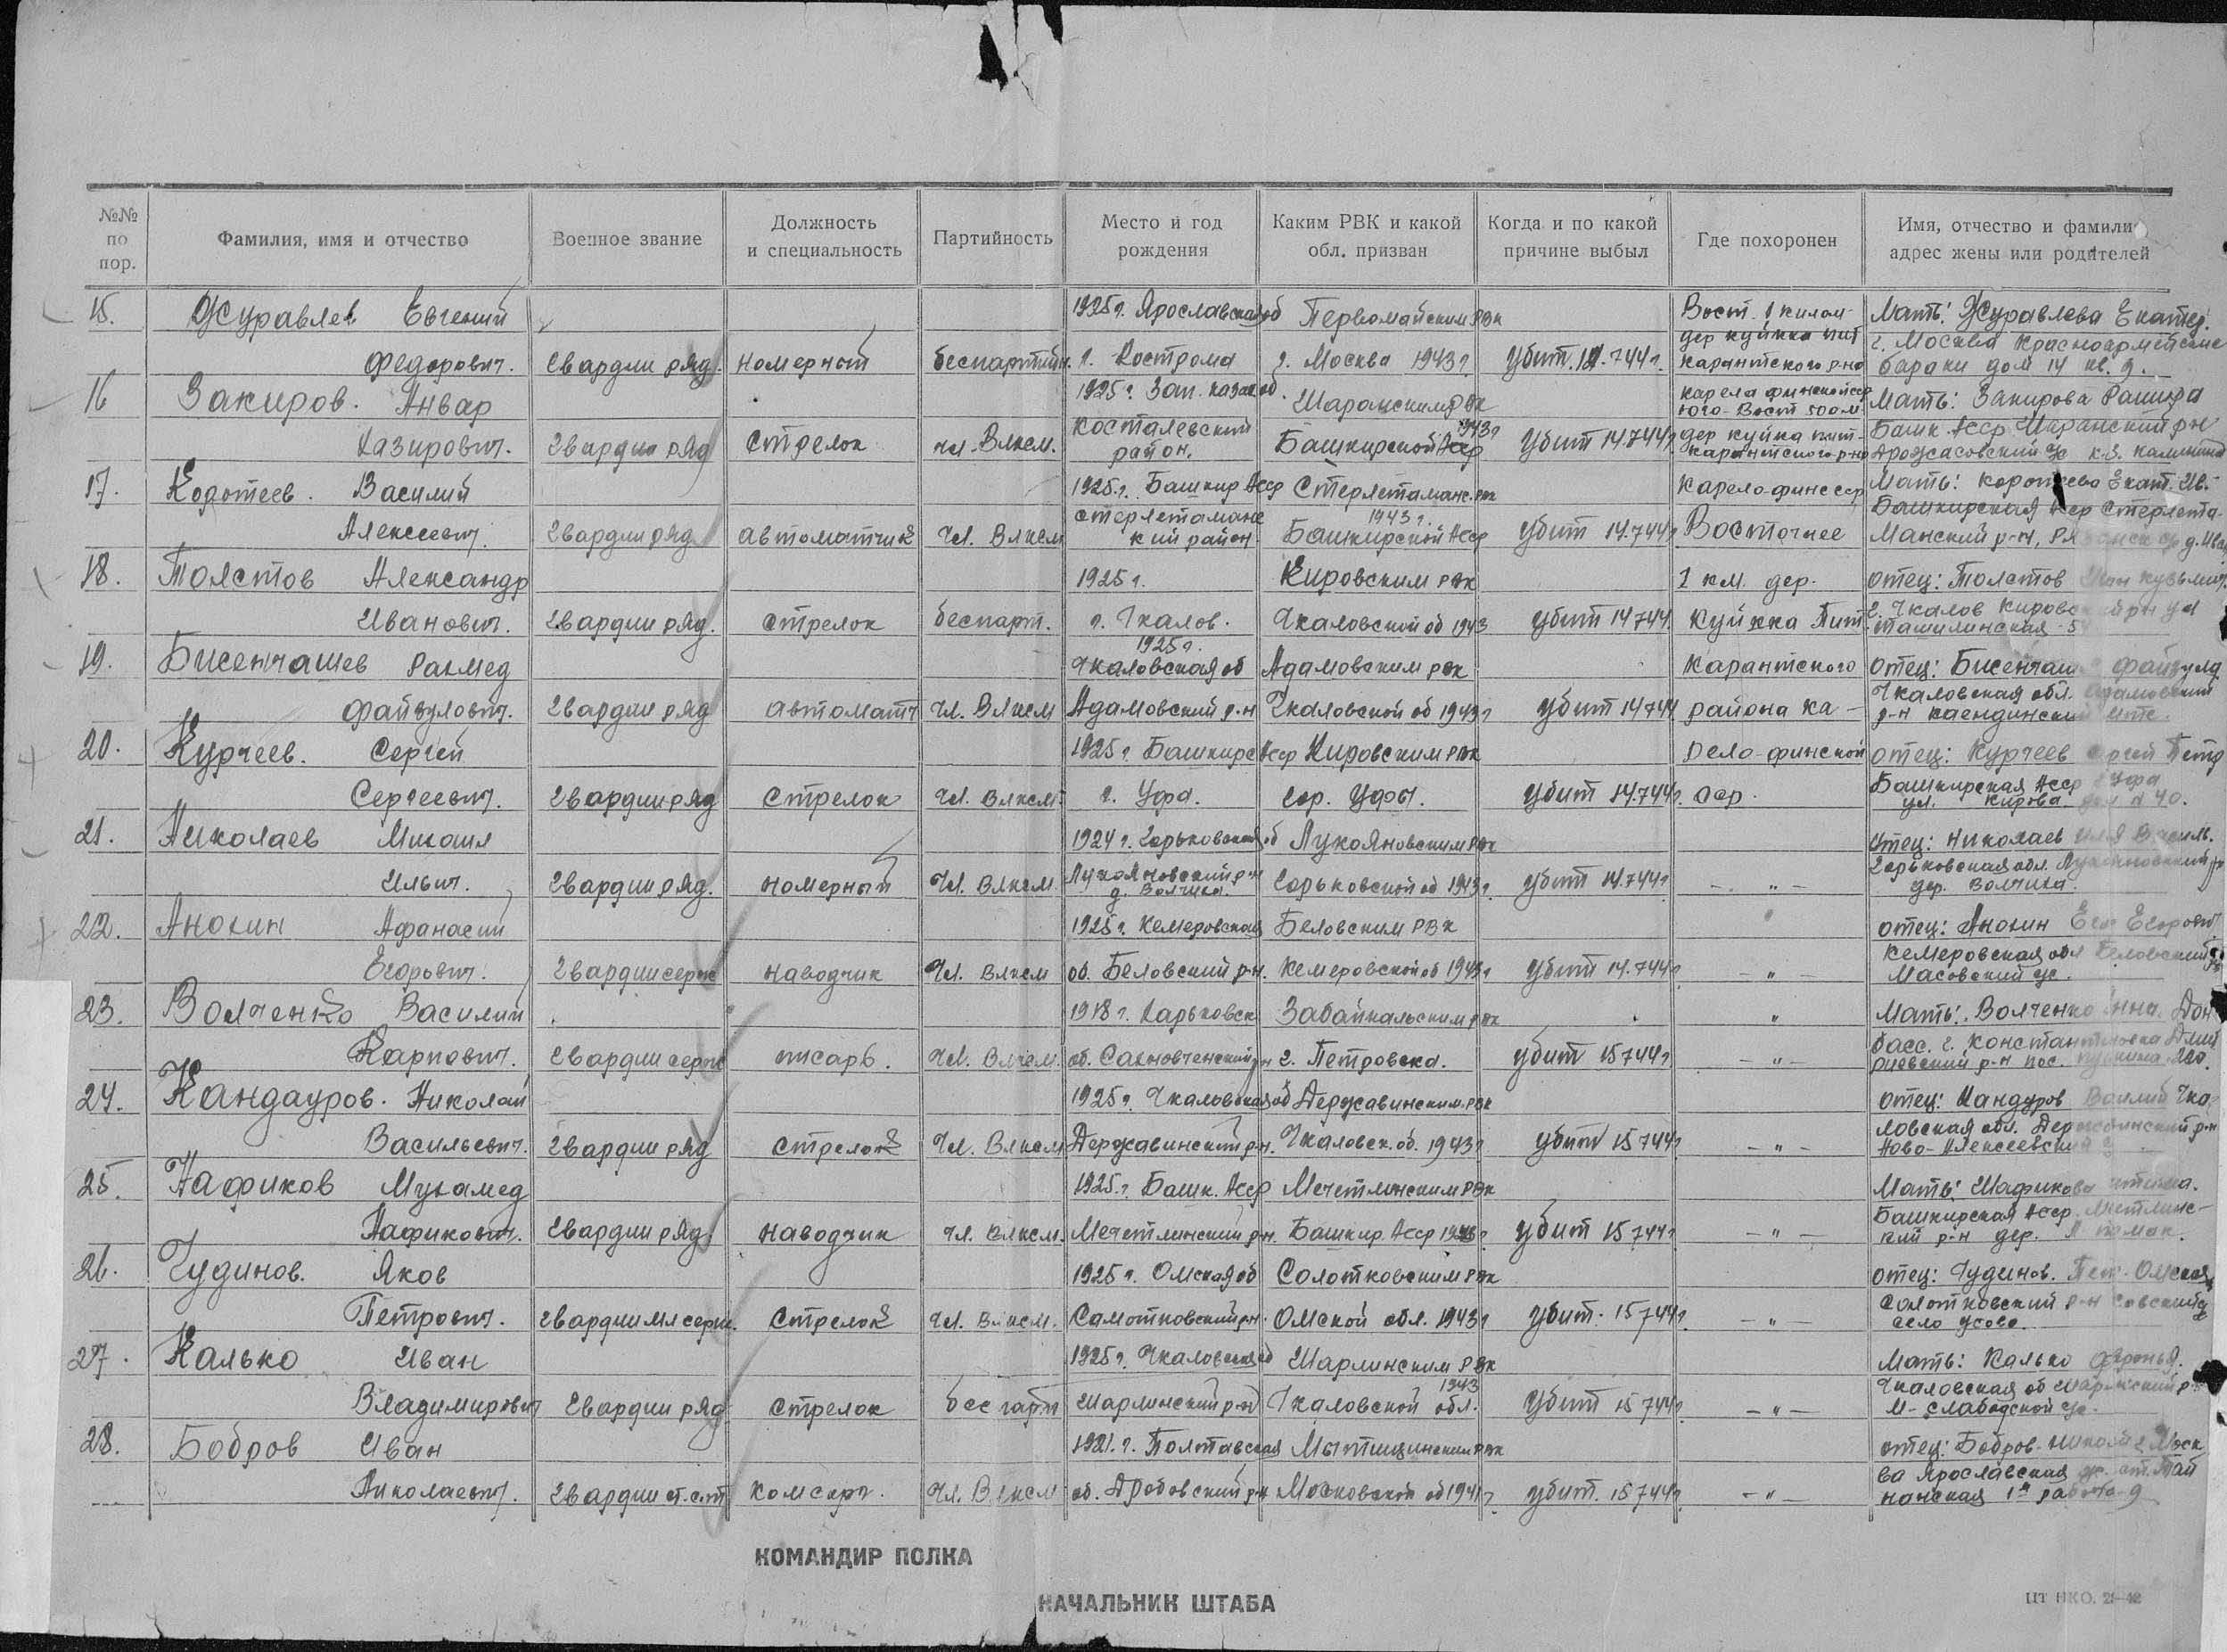 №№ по пор. Фамилия, имя и отчество Военное звание Должность и специальность Партийность Место и год рождения Каким РВК и какой обл. призван Когда и по какой причине выбыл Где похоронен Имя, отчество и фамили адрес жены или родителей
15. Журавлев Евгений 1925 г. Ярославская об Первомайским РВК Вост. 1 килом Мать: Журавлева Екатер.
Федорович. гвардии ряд. номерный беспартийн. г. Кострома г. Москва 1943 г. убит 14.7.44 г. дер Куйкка Пит карантского р-но г. Москва Красноармейские бараки дом 14 кв. 9.
16 Закиров. Анвар 1925 г. Зап. Казах об. Шаранским РВК Карела финской сср Юго-Вост 500 м Мать: Закирова
Хазирович. гвардии ряд стрелок чл. Влксм. район. Башкирской Асср 1943 г убит 14.7.44 г дер Куйка пит-карантского р-но Башк. Асср Шаранский рн
17. Коротеев. Василий 1925 г. Башкир Асср Стерлетаманс. РВК Карело-финс сср Мать: Екат. Ив.
Алексеевич. гвардии ряд. автоматчик Чл. Влксм стерлетаманс кий район 1943 г. Башкирской Асср убит 14.7.44 г Восточнее Башкирская Асср Стерлета-манский р-н,
18. Толстов Александр 1925 г. Кировским РВК 1 км. дер. отец: Толстов
Иванович. гвардии ряд. стрелок беспарт. г. Чкалов. Чкаловской об 1943 убит 14 7 44. Куйкка Пит. г. Чкалов Ташилинская
19. Бисенчашев Рахмед 1925 г. Чкаловская об Адамовским РВК карантского отец:
Файзулович. гвардии ряд автоматч Чл. Влксм Адамовский р-н Чкаловской об 1943 г убит 14 7 44 района Ка- Чкаловская обл. р-н
20. Курчеев. Сергей 1925 г. Башкирс Асср Кировским РВК рело-финской отец: Курчеев Петр
Сергеевич. гвардии ряд стрелок Чл. Влксм г. Уфа. гор. Уфы. убит 14.7.44 г. сср. Башкирская Асср г Уфа ул. Кирова 40.
21. Николаев Михаил 1924 г. Горьковская об Лукояновским РВК отец: Николаев
Ильич. гвардии ряд. номерный Чл. Влксм Лукояновский р-н д. Волчиха. Горьковской об 1943 г. убит 14.7.44 г -"- Горьковская обл. дер. Волчиха.
22. Анохин Афанасий 1925 г. Кемеровская Беловским РВК отец: Анохин Егорович
Егорович. гвардии серж наводчик Чл. Влксм об. Беловский р-н. Кемеровской об 1943 г убит 14.7.44 г -"- Кемеровская обл Беловский
23. Волченко Василий 1918 г. Харьковск Забайкальским РВК " Мать: Волченко Дон-
Карпович. гвардии серж писарь. Чл. Влксм. об. г. Петровска. убит 15 7 44 г -"- басс. г. р-н пос.
24. Кандауров. Николай 1925 г. Чкаловская об Державинским РВК отец: Чка-
Васильевич. гвардии ряд стрелок Чл. Влксм Державинский р-н. Чкаловск. об. 1943 г убит 15 7 44 г -"- ловская обл. р-н Ново-Алексеевский
25. Нафиков Мухамед 1925 г. Башк. Асср Мечетлинским РВК Мать:
Нафикович. гвардии ряд. наводчик Чл. Влксм. Мечетлинский р-н. Башкир. Асср убит 15 7 44 г -"- Башкирская Асср кий р-н дер.
26. Чудинов. Яков 1925 г. Омская об Солотковским РВК отец: Чудинов. Омская
Петрович. гвардии мл серж. стрелок Чл. Влксм. Самотковский рн. Омской обл. 1943 г убит. 15 7 44 г. -"- р-н село Усово.
27. Калько Иван 1925 г. Чкаловская об Шарлинским РВК Мать: Калько
Владимирович гвардии ряд стрелок Шарлинский р-н Чкаловской обл. 1943 убит 15 7 44 г. -"- Чкаловская об р-н
28. Бобров Иван 1921 г. Полтавская Мытищинским РВК отец: Бобров Моск
Николаевич. гвардии комсорг. Чл. Влксм об. р-н Московской об 1941 г убит. 15 7 44 г -"- ва Ярославская
КОМАНДИР ПОЛКА
НАЧАЛЬНИК ШТАБА